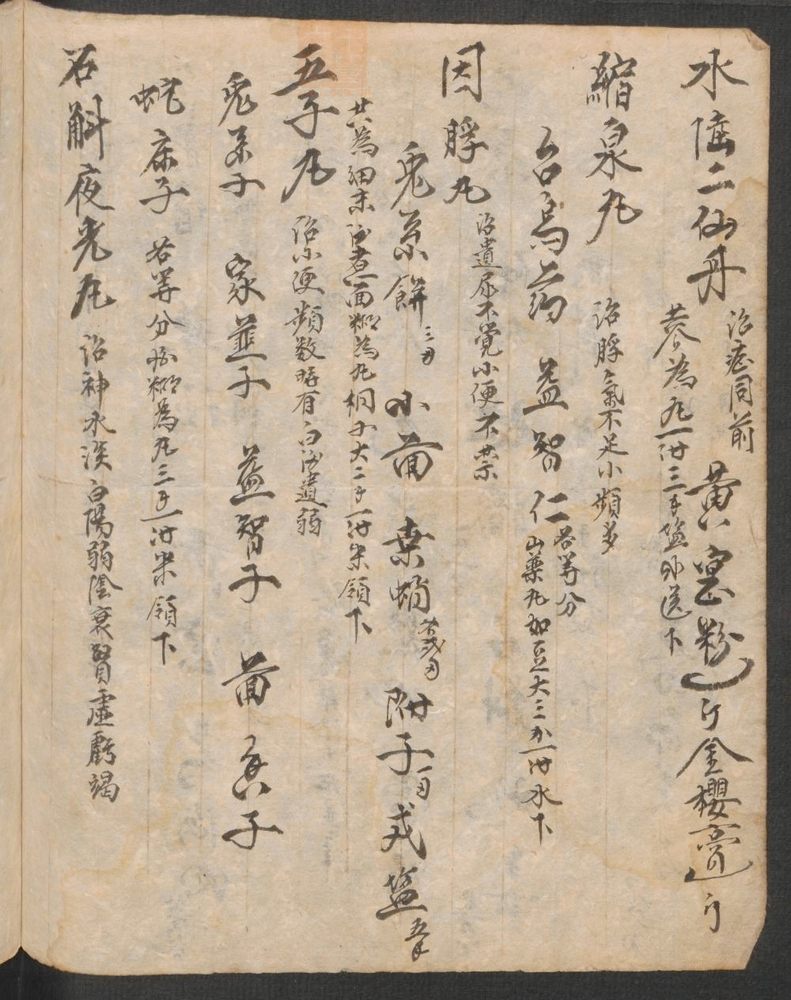 水陸二仙丹 治症同前 黄 粉 金櫻膏
為丸一卄三手盐 送下
縮泉丸 治脬氣不足小頻多
台烏药 益智仁 各等分
山藥丸如豆大三 一卄水下
固脬丸 治遺尿不覚小便不禁
兎糸餅三 小茴 桑蛸 附子一 戎盐
共為細末酒煮面糊為丸桐子大三手一卄米領下
五子丸 治小便頻数時有白濁遺弱
兎糸子 家韮子 益智子 茴香子
蛇床子 各等分 糊為丸三手一卄米領下
石斛夜光丸 治神水淡白陽弱陰衰腎虛虧竭